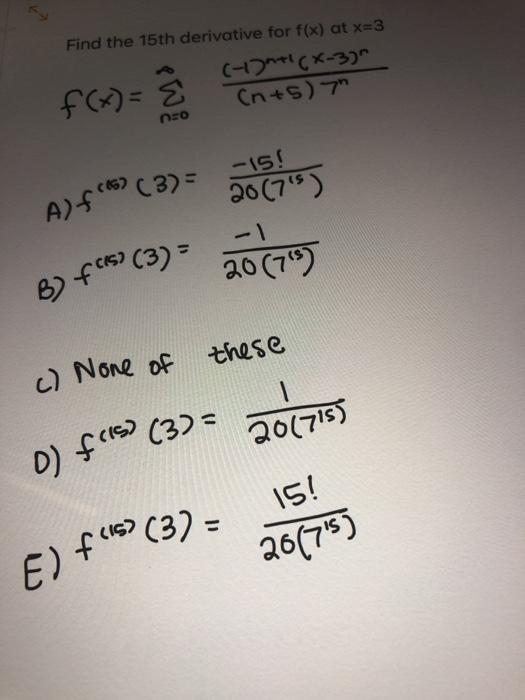 Find the 15th derivative for f(x) at x=3
f(x) = ∞Σn=0 (-1)^n+1 (x-3)^n / (n+5) 7^n
A) f^(15) (3) = -15! / 20(7^15)
B) f^(15) (3) = -1 / 20(7^15)
C) None of these
D) f^(15) (3) = 1 / 20(7^15)
E) f^(15) (3) = 15! / 20(7^15)